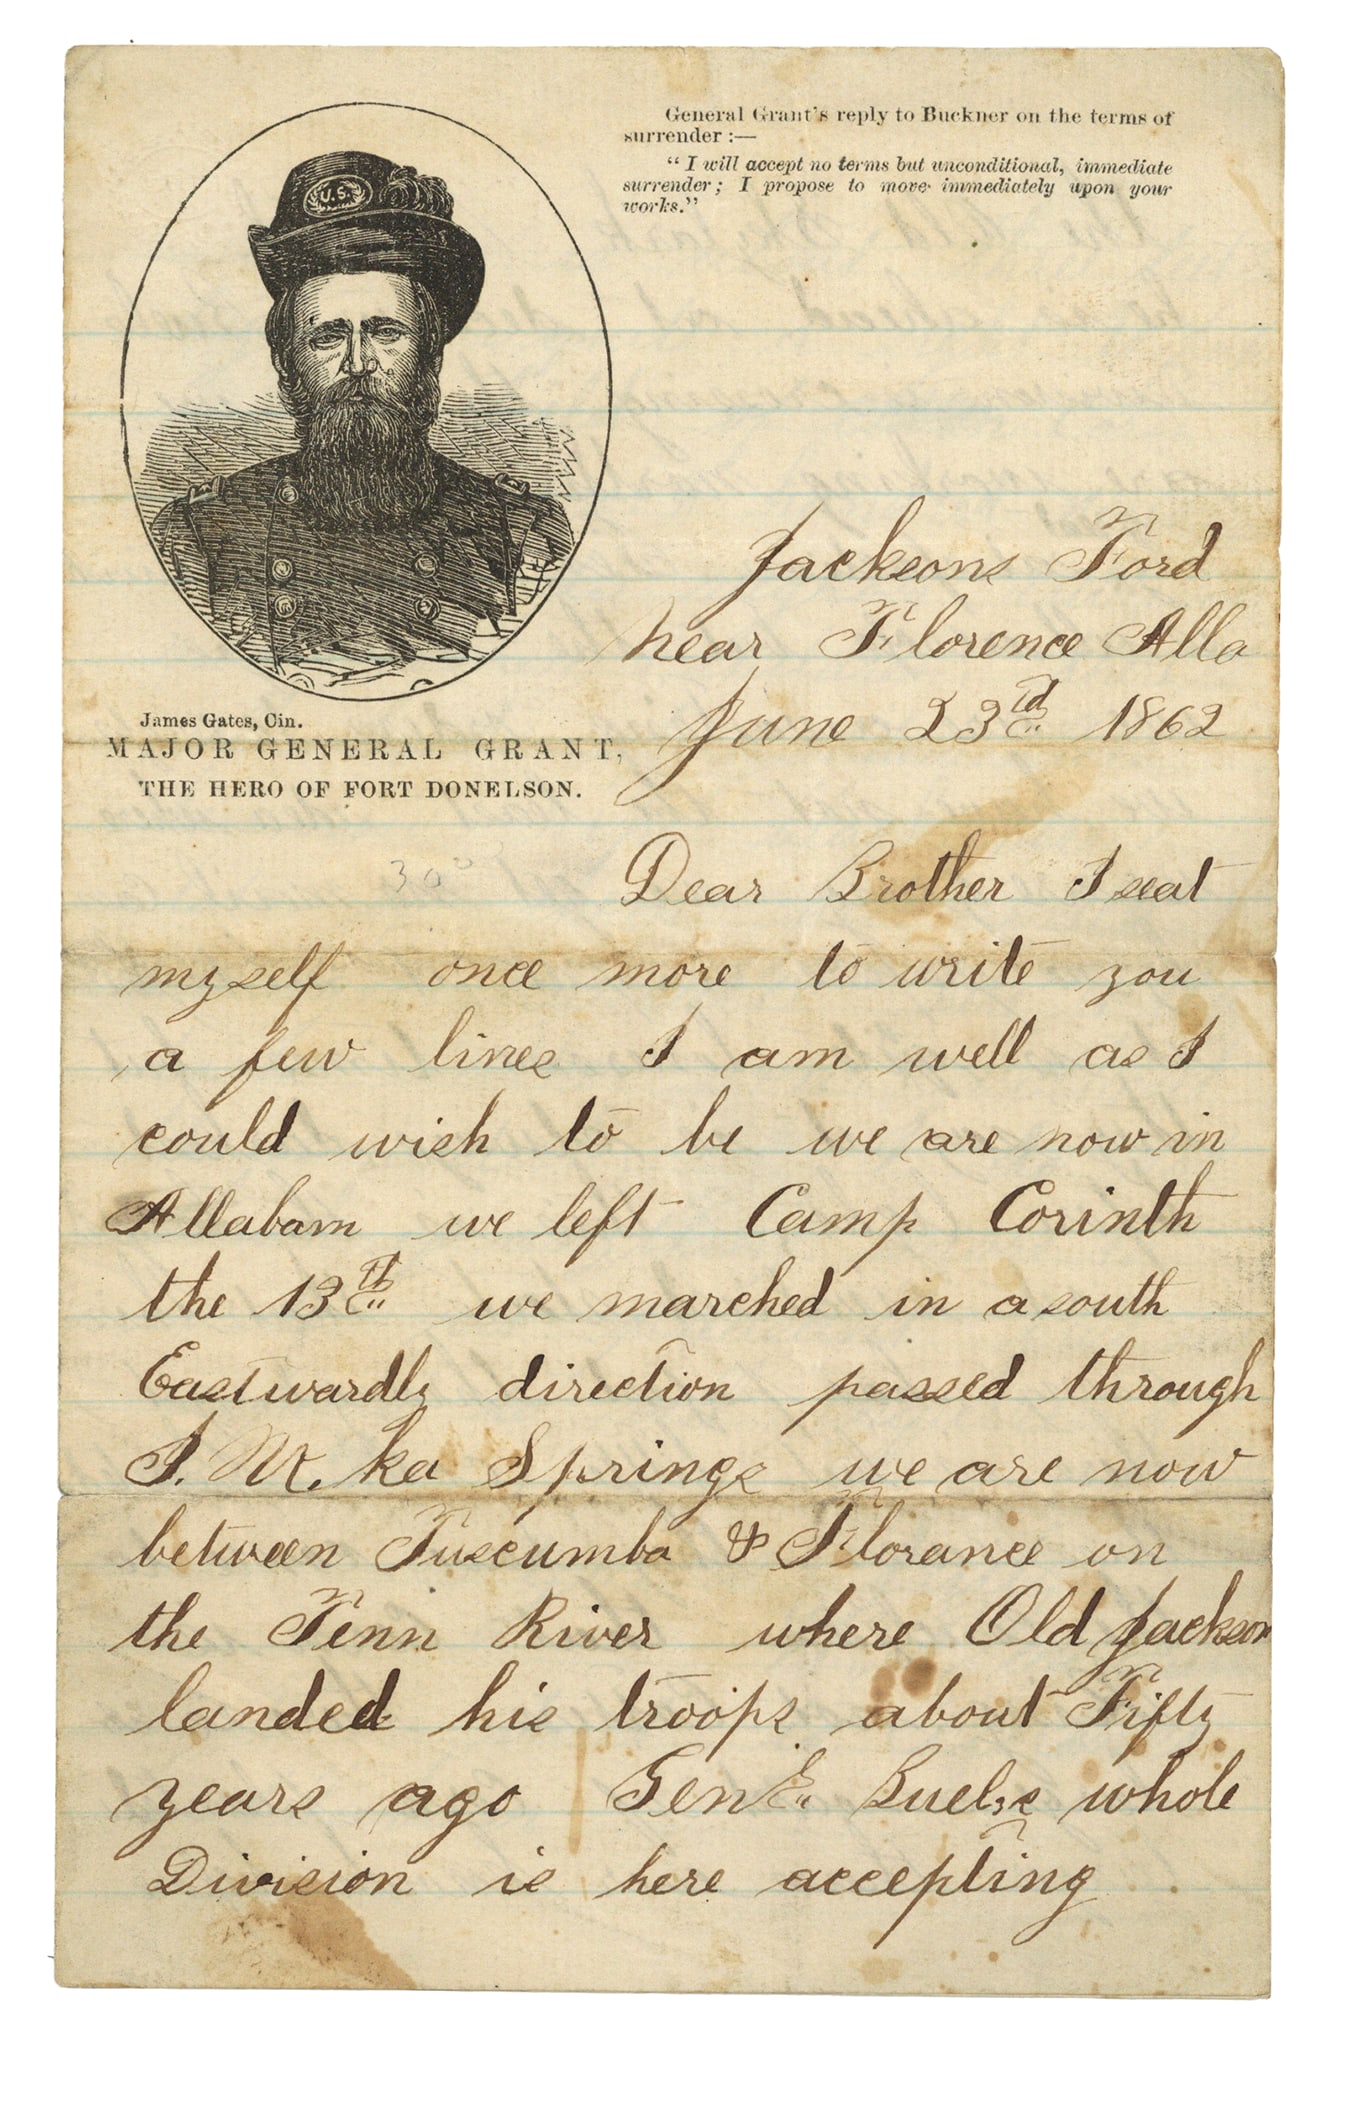 General Grant's reply to Buckner on the terms of
surrender :—
"I will accept no terms but unconditional, immediate
surrender; I propose to move immediately upon your
works."
U.S.
James Gates, Cin.
MAJOR GENERAL GRANT,
THE HERO OF FORT DONELSON.
Jacksons Ford
near Florence Alla
June 23td 1862
30
Dear Brother I seat
myself once more to write you
a few lines I am well as I
could wish to be we are now in
Allabam we left Camp Corinth
the 13th we marched in a south
Eastwardly direction passed through
I. M. ka Springs we are now
between Tuscumba & Florance on
the Tenn River where Old Jackson
landed his troops about Fifty
years ago Genl Buels whole
Division is here accepting